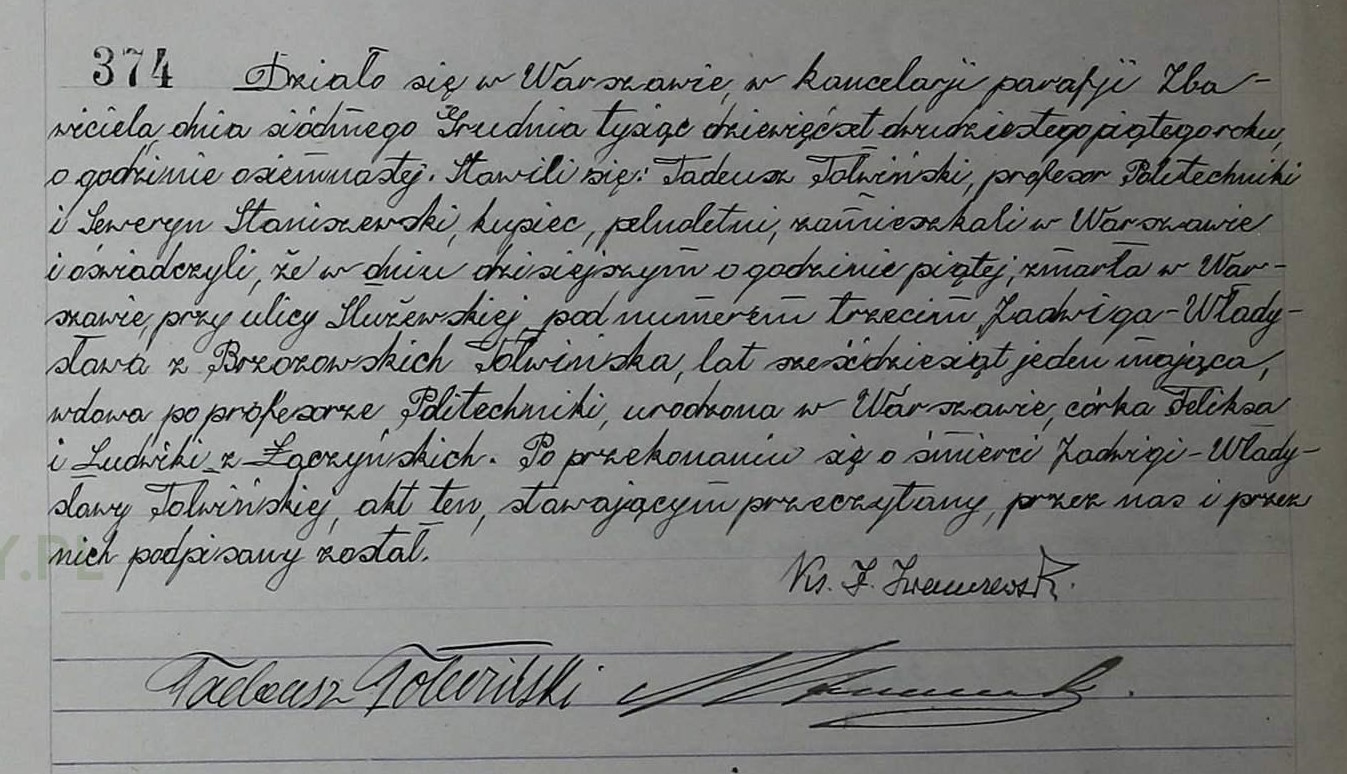 374 Działo się w Warszawie, w kancelarji parafji Zba-
wiciela, dnia siódmego Grudnia tysiąc dziewięćset dwudziestego piątego roku,
o godzinie osiemnastej. Stawili się: Tadeusz Tołwiński, profesor Politechniki
i Seweryn Staniszewski, kupiec, pełnoletni, zamieszkali w Warszawie
i oświadczyli, że w dniu dzisiejszym o godzinie piątej, zmarła w War-
szawie, przy ulicy Służewskiej pod numerem trzecim Jadwiga-Włady-
sława z Brzozowskich Tołwińska, lat sześćdziesiąt jeden mająca,
wdowa po profesorze Politechniki, urodzona w Warszawie, córka Feliksa
i Ludwiki z Łączyńskich. Po przekonaniu się o śmierci Jadwigi-Włady-
sławy Tołwińskiej, akt ten, stawającym przeczytany, przez nas i przez
nich podpisany został.
Y.PL
Ks. J.
Tadeusz Tołwiński